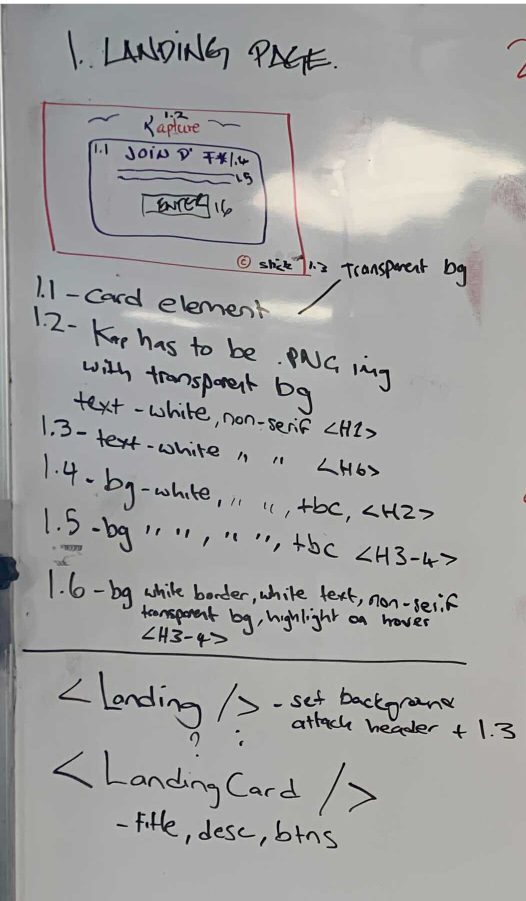 1. LANDING PAGE.
1.2
Kapture
1.1 JOIN D' F*1.4
1.5
ENTER 1.6
© 1.3 transparent bg
1.1 - card element
1.2 - Kap has to be .PNG img
with transparent bg
text - white, non-serif <H1>
1.3 - text - white " " <H6>
1.4 - bg - white, " ", tbc, <H2>
1.5 - bg " ", " ", tbc <H3-4>
1.6 - bg white border, white text, non-serif
transparent bg, highlight on hover
<H3-4>
<Landing /> - set background
attach header + 1.3
? :
<LandingCard />
- title, desc, btns